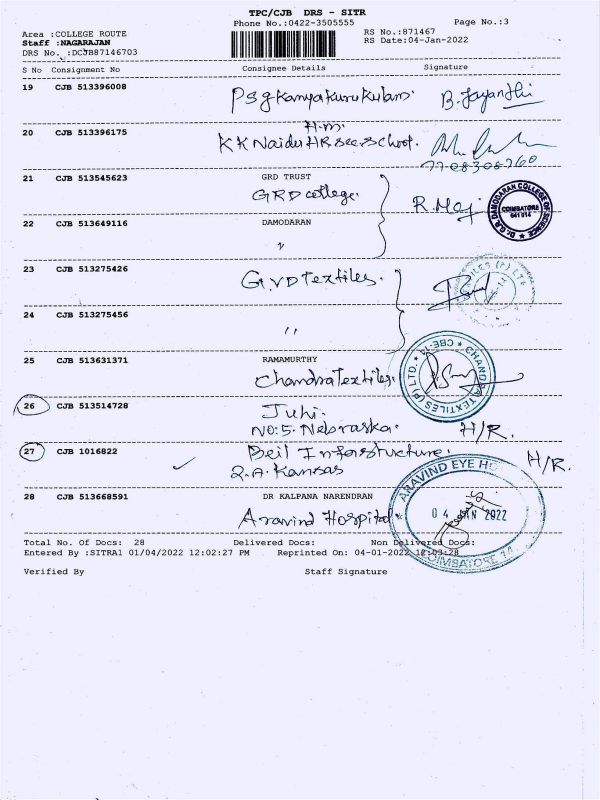 TPC/CJB DRS - SITR
Phone No.:0422-3505555 Page No.:3
Area :COLLEGE ROUTE RS No.:871467
Staff :NAGARAJAN RS Date:04-Jan-2022
DRS No. :DCJB87146703
S No Consignment No Consignee Details Signature
19 CJB 513396008
PSG Kanya Kurukulam. B. Jayanthi
20 CJB 513396175 H.M.
KK Naidu HR sec school.
7708308760
21 CJB 513545623 GRD TRUST
GRD college. R. Mej
DR. G.R. DAMODARAN COLLEGE OF SCIENCE COIMBATORE 641 014
22 CJB 513649116 DAMODARAN
"
23 CJB 513275426
G.V.D Textiles.
24 CJB 513275456
"
25 CJB 513631371 RAMAMURTHY
Chandra Textiles.
CHANDRA TEXTILES (P) LTD. CBE-14
26 CJB 513514728 Juhi.
No: 5. Nebraska. H/R.
27 CJB 1016822 Beil Infarstucture. H/R.
2.A. Kansas
28 CJB 513668591 DR KALPANA NARENDRAN
Aravind Hospital
ARAVIND EYE HO
04 JAN 2022
COIMBATORE 14
Total No. Of Docs: 28 Delivered Docs: Non Delivered Docs:
Entered By :SITRA1 01/04/2022 12:02:27 PM Reprinted On: 04-01-2022 12:03:28
Verified By Staff Signature